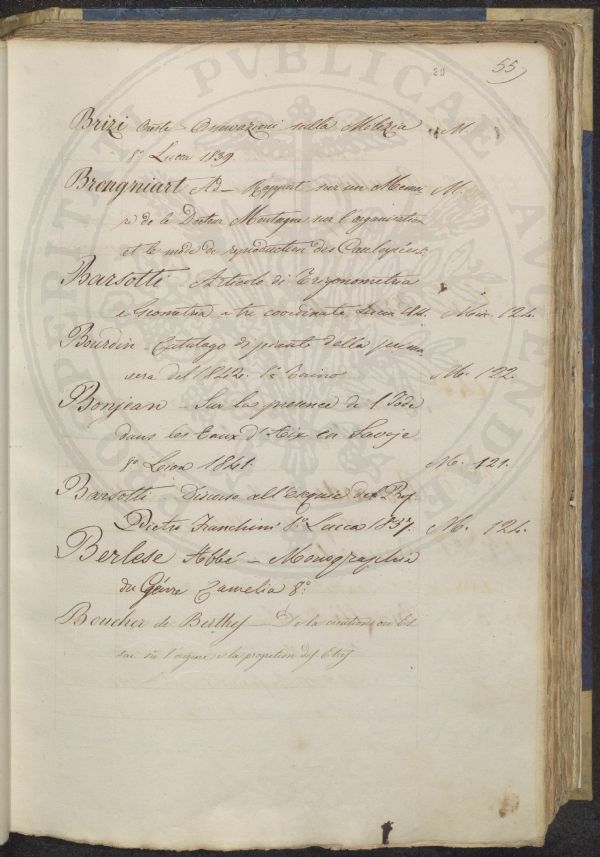 55
Brizi Oreste Osservazioni sulla Milizia M.
8º Lucca 1839.
Brongniart Ad — Rapport sur un Memoi M.
re de le Docteur Montagne sur l'organisation
et le mode de reproduction des Caulopées
Barsotti Articolo di Trigonometria
e Geometria a tre coordinate Lucca Min. 124.
Bourdin Catalogo di piante della prima
vera del 1842. 1º Torino M. 122.
Bonjean — Sur la presence de l'Iode
dans les Eaux d'Aix en Savoje
8º Lion 1841. M. 121.
Barsotti Discorso all'Esequie del Prof.
Pietro Franchini 8º Lucca 1837. M. 124.
Berlese Abbé — Monographie
du Genre Camelia 8º
Boucher de Berthes — De la creation
sur l'origine et la progression des Etres
PROSPERITATI PVBLICAE AVGENDAE